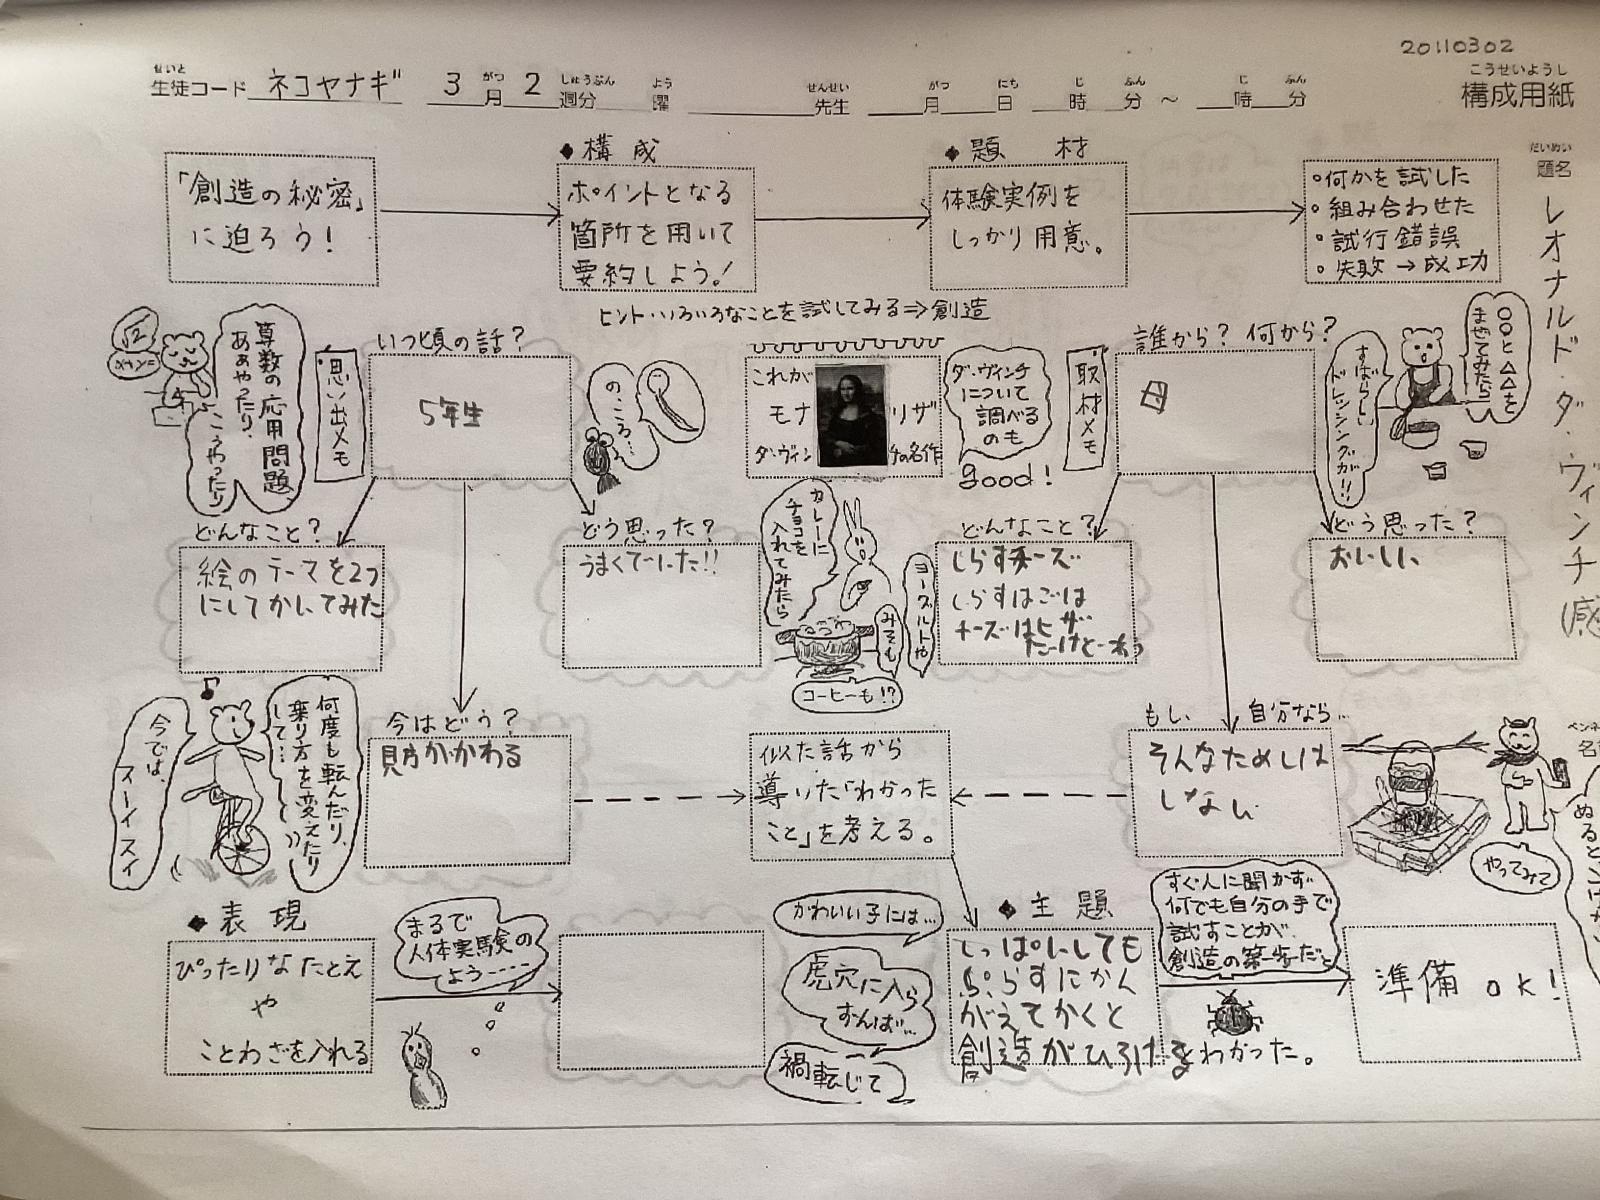 20110302
せいと
生徒コード ネコヤナギ 3月 2週分 曜 先生 月 日 時 分 ～ 時 分
がつ しゅうぶん よう せんせい がつ にち じ ふん じ ふん
こうせいようし
構成用紙
だいめい
題名
レオナルド・ダ・ヴィンチ(感
「創造の秘密」
に迫ろう!
◆構成
ポイントとなる
箇所を用いて
要約しよう!
◆題材
体験実例を
しっかり用意。
・何かを試した
・組み合わせた
・試行錯誤
・失敗→成功
ヒント・いろいろなことを試してみる⇒創造
√2
x+y=
算数の応用問題
あぁやったり、
こうやったり
思い出メモ
いつ頃の話?
5年生
の、ころ…
これが
モナ リザ
ダ・ヴィンチの名作
ダ・ヴィンチ
について
調べる
のも
good!
取材メモ
誰から? 何から?
母
すばらしい
ドレッシングが!!
○○と△△を
まぜてみたら
どんなこと?
絵のテーマを2つ
にしてかいてみた
どう思った?
うまくできた!!
カレーに
チョコを
入れてみたら
ヨーグルトや
みそも
コーヒーも!?
どんなこと?
しらすチーズ
しらすはごは
チーズはピザ
だけど
どう思った?
おいしい
今では、
スーイスイ
何度も転んだり、
乗り方を変えたり
して…
今はどう?
見方がかわる
似た話から
導いた「わかった
こと」を考える。
もし 自分なら…
そんなためしは
しない
やってみて
ペンネ
名
ぬると
◆表現
ぴったりなたとえ
や
ことわざを入れる
まるで
人体実験の
よう----
かわいい子には…
虎穴に入ら
ずんば…
禍転じて
◆主題
しっぱいしても
がえてかくと
創造がひろげるとわかった。
すぐ人に聞かず
何でも自分の手で
試すことが、
創造の第一歩だと
準備 OK!